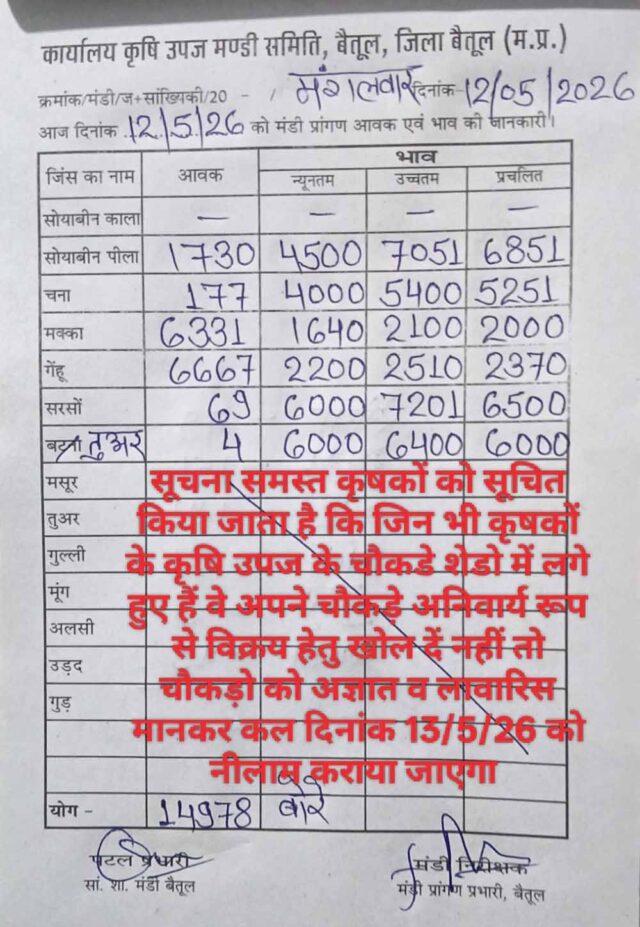 कार्यालय कृषि उपज मण्डी समिति, बैतूल, जिला बैतूल (म.प्र.)
क्रमांक/मंडी/ज+सांख्यिकी/20 - / मंगलवार दिनांक-12/05/2026
आज दिनांक 12/5/26 को मंडी प्रांगण आवक एवं भाव की जानकारी।
जिंस का नाम आवक भाव
न्यूनतम उच्चतम प्रचलित
सोयाबीन काला — — — —
सोयाबीन पीला 1730 4500 7051 6851
चना 177 4000 5400 5251
मक्का 6331 1640 2100 2000
गेंहू 6667 2200 2510 2370
सरसों 69 6000 7201 6500
बटना तुअर 4 6000 6400 6000
मसूर
तुअर
गुल्ली
मूंग
अलसी
उड़द
गुड़
सूचना समस्त कृषकों को सूचित
किया जाता है कि जिन भी कृषकों
के कृषि उपज के चौकडे शेडो में लगे
हुए हैं वे अपने चौकड़े अनिवार्य रूप
से विक्रय हेतु खोल दें नहीं तो
चौकड़ो को अज्ञात व लावारिस
मानकर कल दिनांक 13/5/26 को
नीलाम कराया जाएगा
योग - 14978 बोरे
पटल प्रभारी
सां. शा. मंडी बैतूल
मंडी निरीक्षक
मंडी प्रांगण प्रभारी, बैतूल